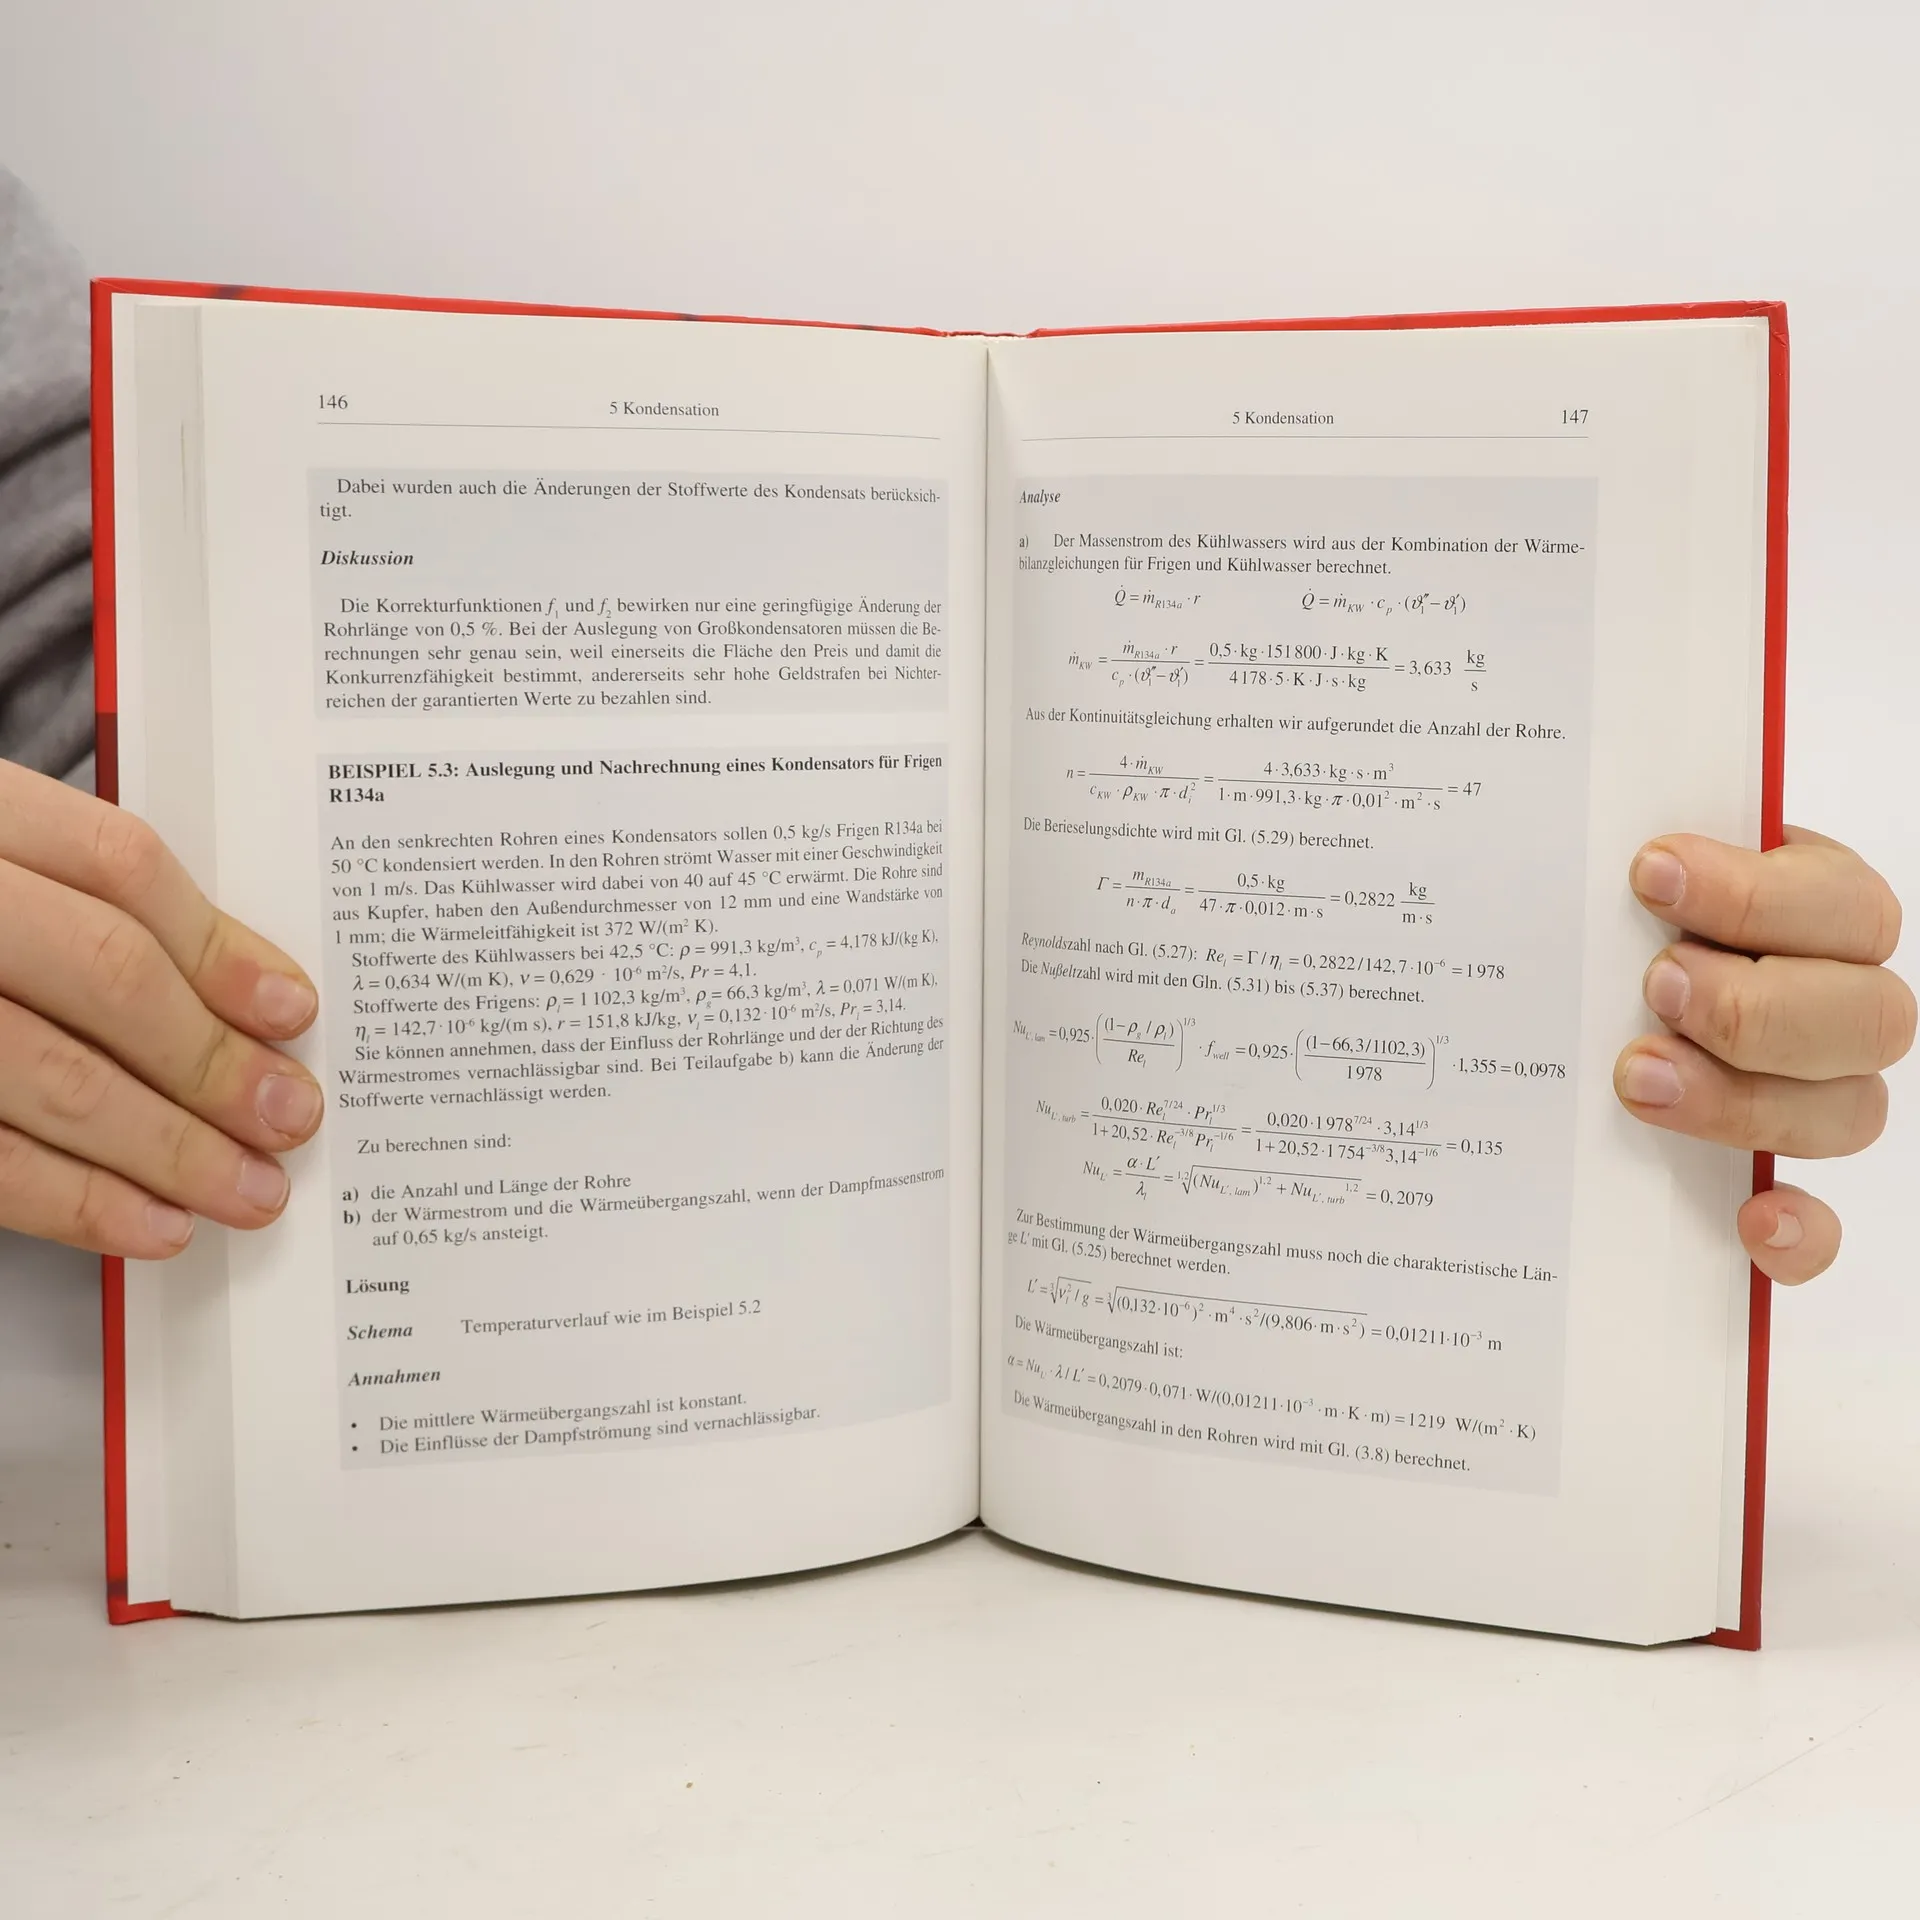 146
5 Kondensation
Dabei wurden auch die Änderungen der Stoffwerte des Kondensats berücksich-
tigt.
Diskussion
Die Korrekturfunktionen f₁ und f₂ bewirken nur eine geringfügige Änderung der
Rohrlänge von 0,5 %. Bei der Auslegung von Großkondensatoren müssen die Be-
rechnungen sehr genau sein, weil einerseits die Fläche den Preis und damit die
Konkurrenzfähigkeit bestimmt, andererseits sehr hohe Geldstrafen bei Nichter-
reichen der garantierten Werte zu bezahlen sind.
BEISPIEL 5.3: Auslegung und Nachrechnung eines Kondensators für Frigen
R134a
An den senkrechten Rohren eines Kondensators sollen 0,5 kg/s Frigen R134a bei
50 °C kondensiert werden. In den Rohren strömt Wasser mit einer Geschwindigkeit
von 1 m/s. Das Kühlwasser wird dabei von 40 auf 45 °C erwärmt. Die Rohre sind
aus Kupfer, haben den Außendurchmesser von 12 mm und eine Wandstärke von
1 mm; die Wärmeleitfähigkeit ist 372 W/(m² K).
Stoffwerte des Kühlwassers bei 42,5 °C: ρ = 991,3 kg/m³, c_p = 4,178 kJ/(kg K),
λ = 0,634 W/(m K), ν = 0,629 · 10⁻⁶ m²/s, Pr = 4,1.
Stoffwerte des Frigens: ρ_l = 1 102,3 kg/m³, ρ_g = 66,3 kg/m³, λ = 0,071 W/(m K),
η_l = 142,7·10⁻⁶ kg/(m s), r = 151,8 kJ/kg, ν_l = 0,132·10⁻⁶ m²/s, Pr_l = 3,14.
Sie können annehmen, dass der Einfluss der Rohrlänge und der der Richtung des
Wärmestromes vernachlässigbar sind. Bei Teilaufgabe b) kann die Änderung der
Stoffwerte vernachlässigt werden.
Zu berechnen sind:
a) die Anzahl und Länge der Rohre
b) der Wärmestrom und die Wärmeübergangszahl, wenn der Dampfmassenstrom
auf 0,65 kg/s ansteigt.
Lösung
Schema Temperaturverlauf wie im Beispiel 5.2
Annahmen
• Die mittlere Wärmeübergangszahl ist konstant.
• Die Einflüsse der Dampfströmung sind vernachlässigbar.
5 Kondensation
147
Analyse
a) Der Massenstrom des Kühlwassers wird aus der Kombination der Wärme-
bilanzgleichungen für Frigen und Kühlwasser berechnet.
Q̇ = ṁ_R134a · r Q̇ = ṁ_KW · c_p · (ϑ₁″ − ϑ₁′)
ṁ_KW = (ṁ_R134a · r)/(c_p · (ϑ₁″ − ϑ₁′)) = (0,5·kg·151 800·J·kg·K)/(4 178·5·K·J·s·kg) = 3,633 kg/s
Aus der Kontinuitätsgleichung erhalten wir aufgerundet die Anzahl der Rohre.
n = (4·ṁ_KW)/(c_KW · ρ_KW · π · d_i²) = (4·3,633·kg·s·m³)/(1·m·991,3·kg·π·0,01²·m²·s) = 47
Die Berieselungsdichte wird mit Gl. (5.29) berechnet.
Γ = ṁ_R134a/(n·π·d_a) = (0,5·kg)/(47·π·0,012·m·s) = 0,2822 kg/(m·s)
Reynoldszahl nach Gl. (5.27): Re_l = Γ / η_l = 0,2822/142,7·10⁻⁶ = 1978
Die Nußeltzahl wird mit den Gln. (5.31) bis (5.37) berechnet.
Nu_L′, lam = 0,925·((1−ρ_g / ρ_l)/Re_l)^1/3 · f_well = 0,925·((1−66,3/1102,3)/1978)^1/3 · 1,355 = 0,0978
Nu_L′, turb = (0,020·Re_l^7/24 · Pr_l^1/3)/(1+20,52·Re_l^−3/8 Pr_l^−1/6) = (0,020·1978^7/24 · 3,14^1/3)/(1+20,52·1754^−3/8 3,14^−1/6) = 0,135
Nu_L′ = (α·L′)/λ_l = ^1,2√((Nu_L′, lam)^1,2 + Nu_L′, turb^1,2) = 0,2079
Zur Bestimmung der Wärmeübergangszahl muss noch die charakteristische Län-
ge L′ mit Gl. (5.25) berechnet werden.
L′ = ³√(ν_l² / g) = ³√((0,132·10⁻⁶)²·m⁴·s²/(9,806·m·s²)) = 0,01211·10⁻³ m
Die Wärmeübergangszahl ist:
α = Nu_L′ · λ / L′ = 0,2079·0,071·W/(0,01211·10⁻³·m·K·m) = 1219 W/(m²·K)
Die Wärmeübergangszahl in den Rohren wird mit Gl. (3.8) berechnet.